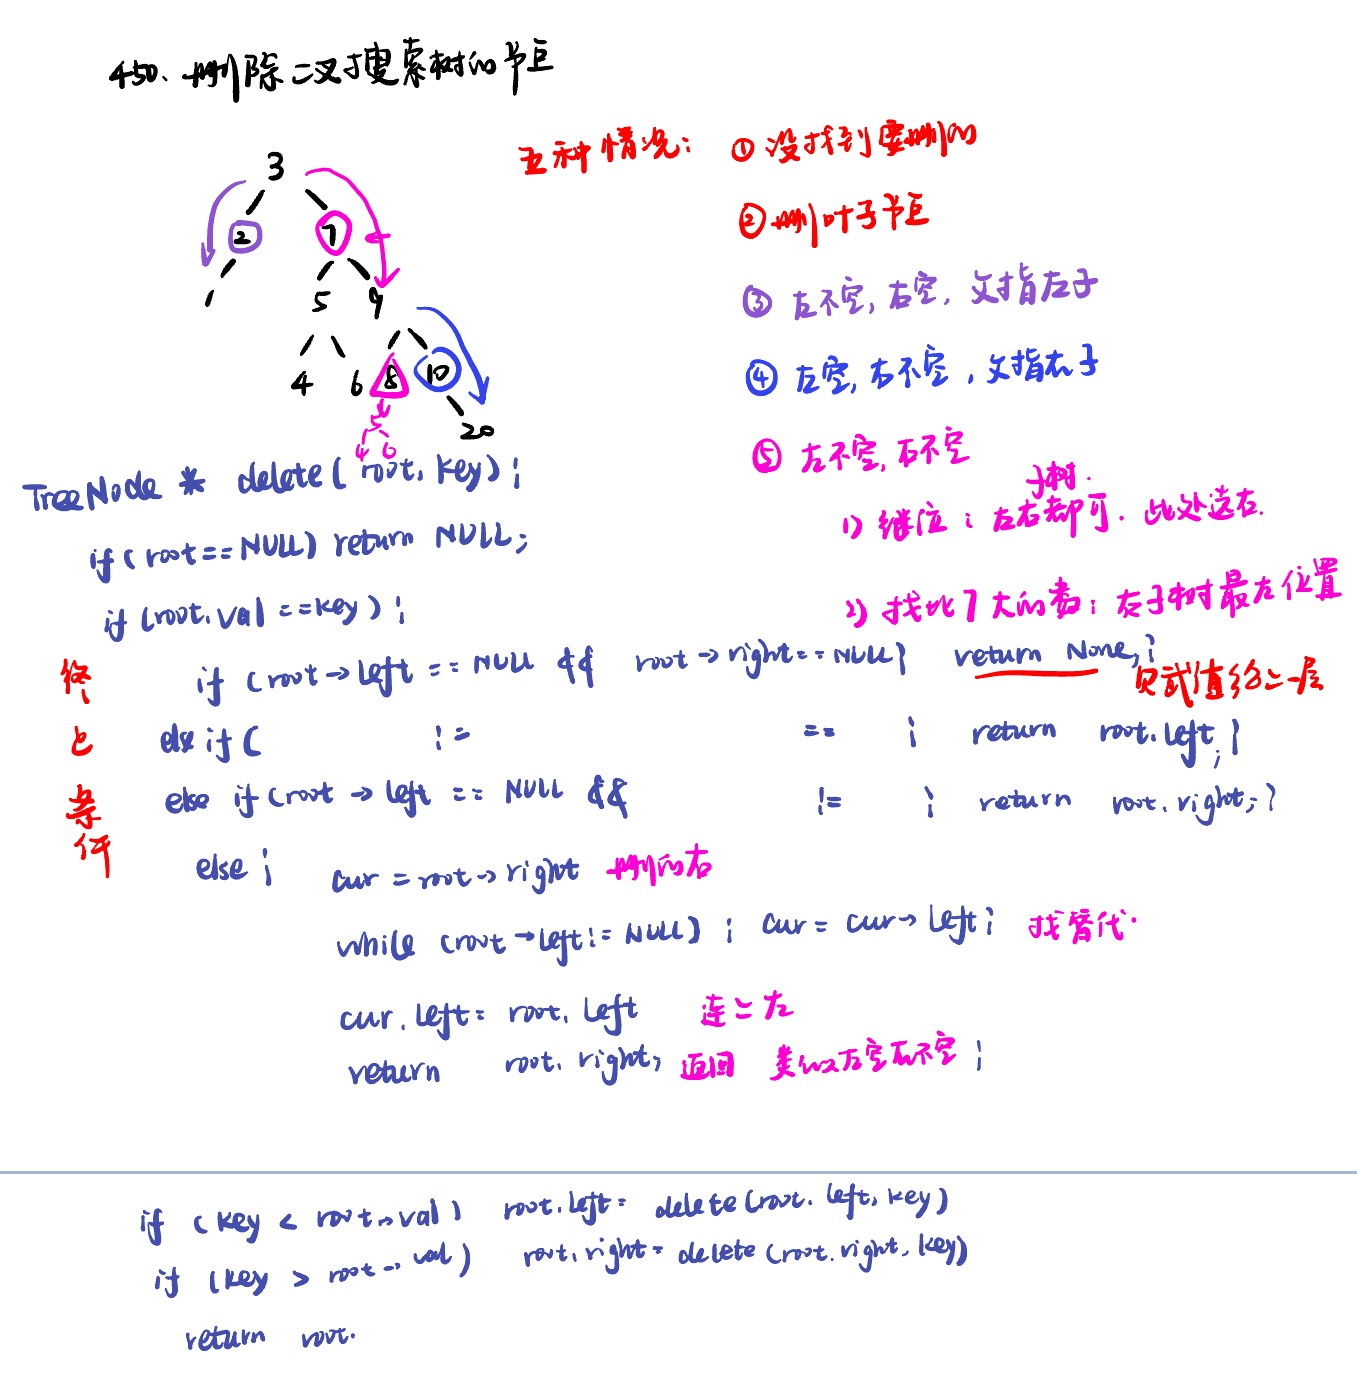 450. 删除二叉搜索树的节点
五种情况: ① 没找到要删的
② 删叶子节点
③ 左不空, 右空, 父指左子
④ 左空, 右不空, 父指右子
⑤ 左不空, 右不空
子树.
1) 继位: 左右都可. 此处选右.
2) 找比7大的数: 右子树最左位置
3
2 7
1 5 9
4 6 8 10
5 20
4 6
TreeNode * delete( root, key) {
if ( root == NULL) return NULL;
if (root.val == key) {
终止条件
if (root → left == NULL && root → right == NULL) return None; }
赋值给上一层
else if ( != == { return root.left; }
else if (root → left == NULL && != { return root.right; }
else { cur = root → right 删的右
while (root → left != NULL) { cur = cur → left; 找替代.
cur.left = root.left 连上左
return root.right; 返回 类似左空右不空 }
if (key < root → val) root.left = delete(root.left, key)
if (key > root → val) root.right = delete (root.right, key)
return root.